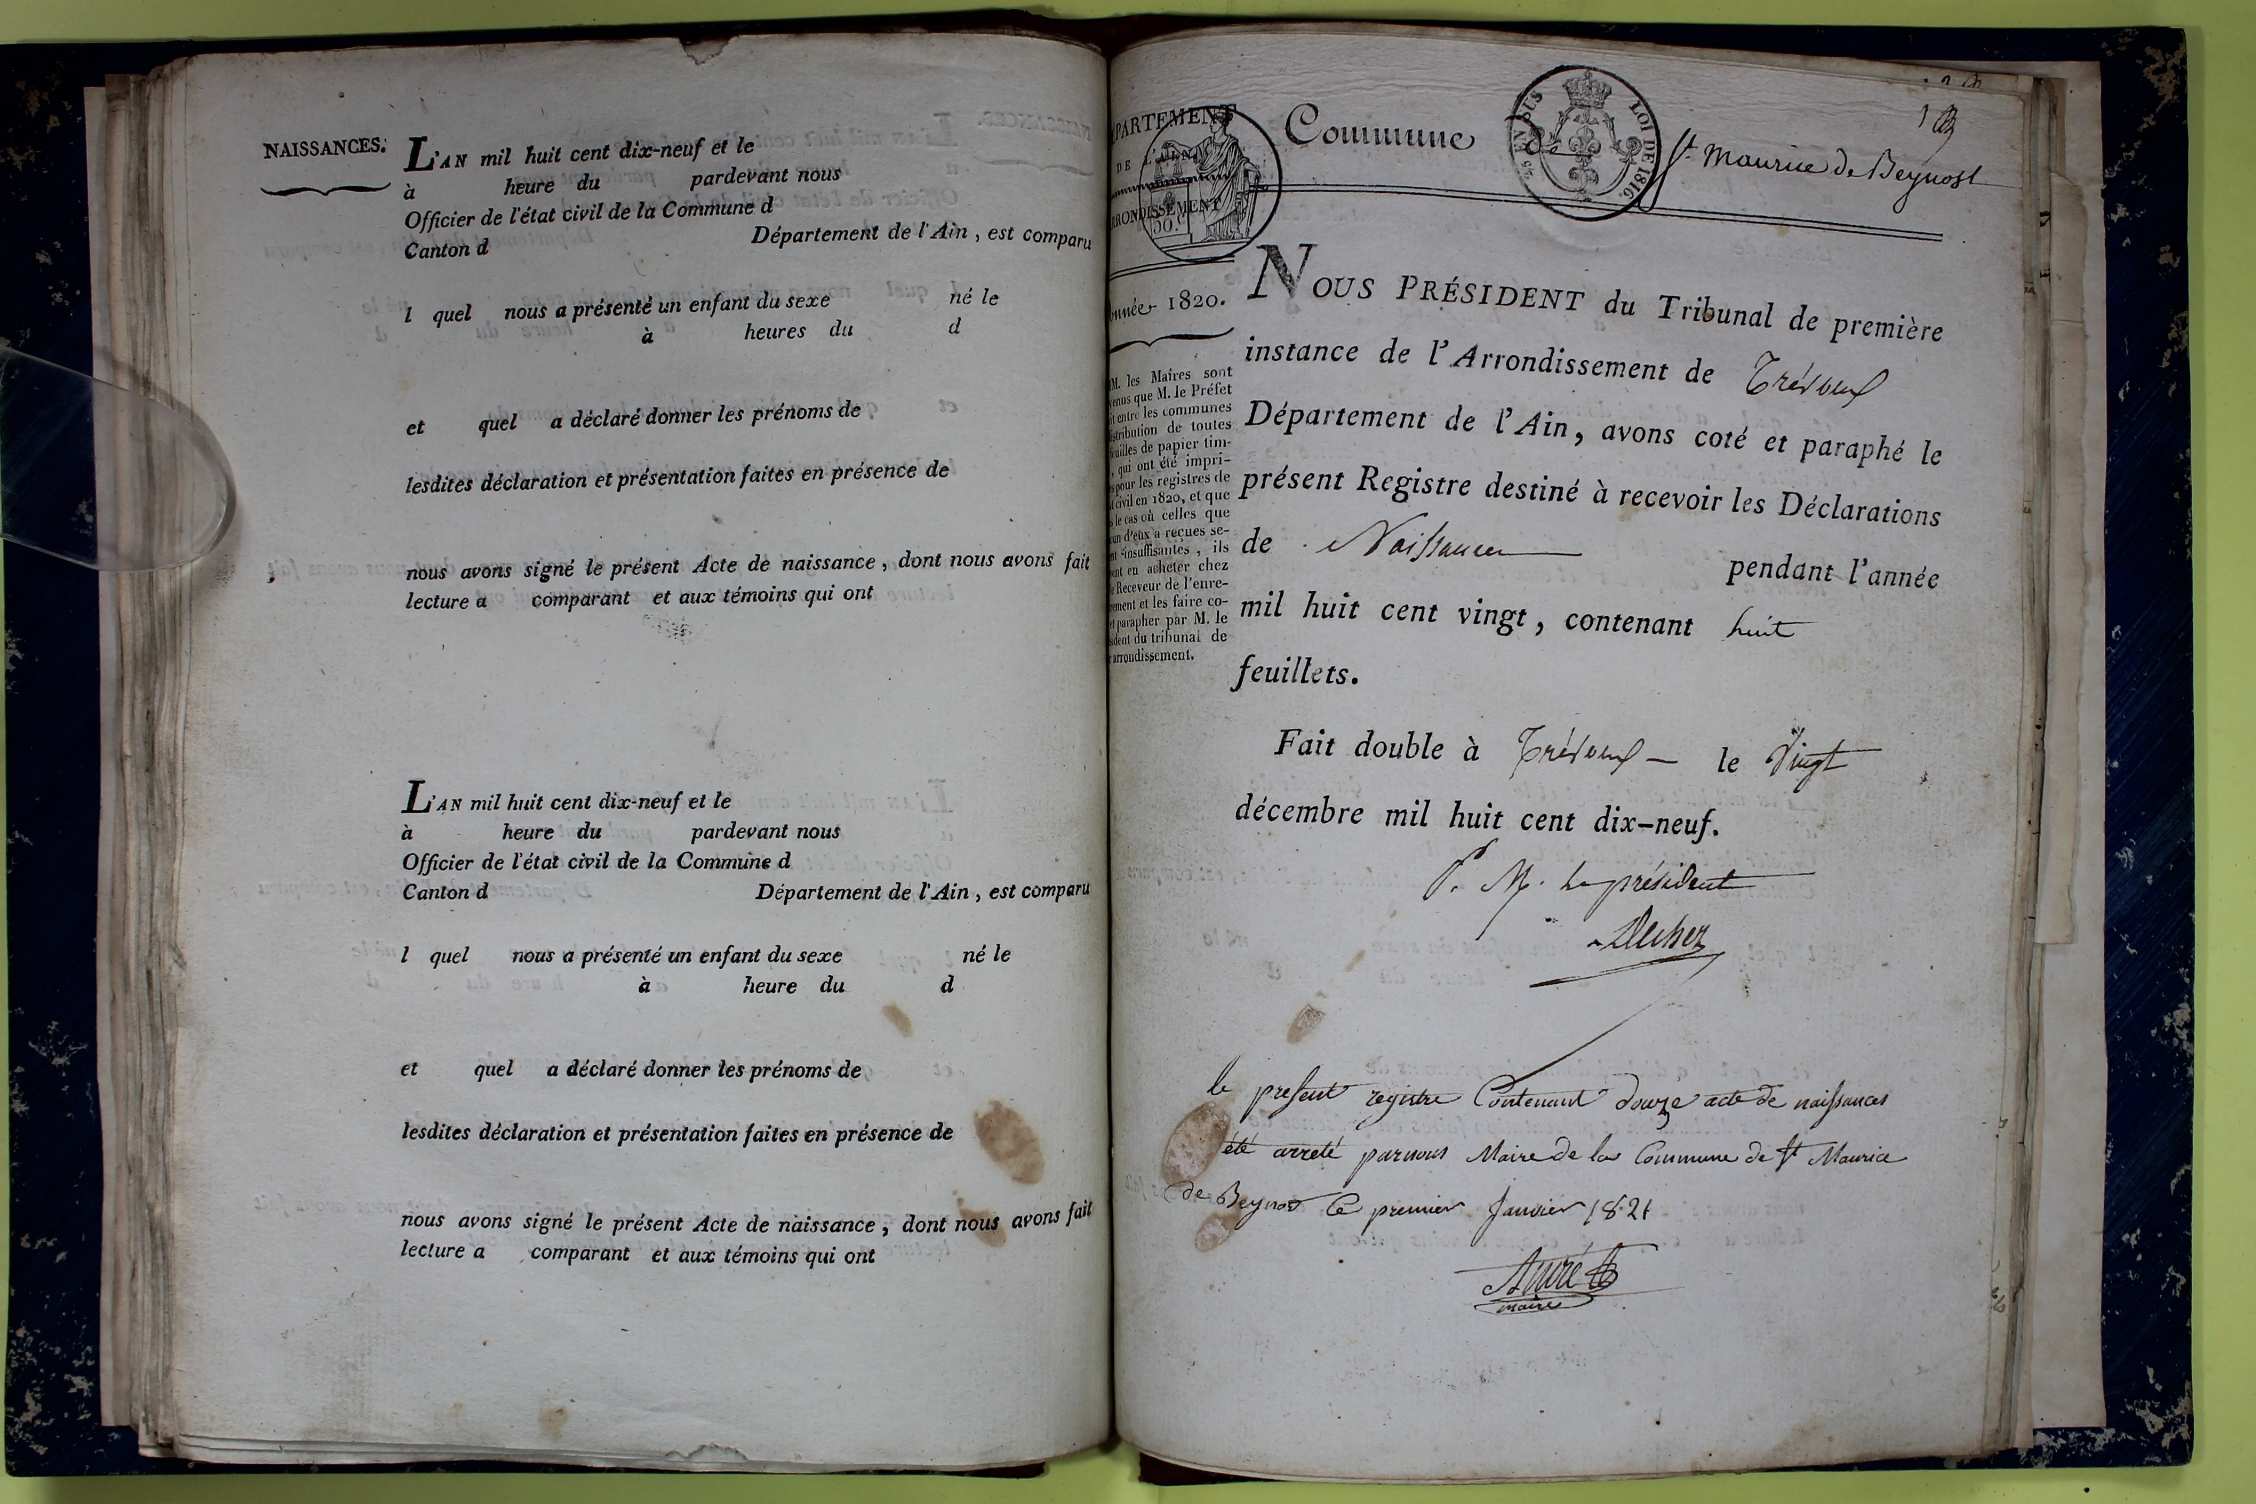 NAISSANCES.
L'AN mil huit cent dix-neuf et le
à heure du pardevant nous
Officier de l'état civil de la Commune d
Canton d Département de l'Ain, est comparu
l quel nous a présenté un enfant du sexe né le
à heures du d
et quel a déclaré donner les prénoms de
lesdites déclaration et présentation faites en présence de
nous avons signé le présent Acte de naissance, dont nous avons fait
lecture a comparant et aux témoins qui ont
L'AN mil huit cent dix-neuf et le
à heure du pardevant nous
Officier de l'état civil de la Commune d
Canton d Département de l'Ain, est comparu
l quel nous a présenté un enfant du sexe né le
à heure du d
et quel a déclaré donner les prénoms de
lesdites déclaration et présentation faites en présence de
nous avons signé le présent Acte de naissance, dont nous avons fait
lecture a comparant et aux témoins qui ont
PARTEMENT
DE L'AIN
RRONDISSEMENT
50.
EN SUS
LOI DE 1816.
Commune de St. Maurice de Beynost
1
nnée 1820.
M. les Maires sont
venus que M. le Préfet
it entre les communes
istribution de toutes
euilles de papier tim-
, qui ont été impri-
s pour les registres de
t civil en 1820, et que
s le cas où celles que
un d'eux a reçues se-
nt insuffisantes, ils
ent en acheter chez
e Receveur de l'enre-
rement et les faire co-
et parapher par M. le
sident du tribunal de
arrondissement.
NOUS PRÉSIDENT du Tribunal de première
instance de l'Arrondissement de Trévoux
Département de l'Ain, avons coté et paraphé le
présent Registre destiné à recevoir les Déclarations
de Naissances pendant l'année
mil huit cent vingt, contenant huit
feuillets.
Fait double à Trévoux le Vingt
décembre mil huit cent dix-neuf.
P. M. le président
le present registre Contenant douze acte de naissances
été arreté par nous Maire de la Commune de St Maurice
de Beynost Ce premier Janvier 1821
André
maire